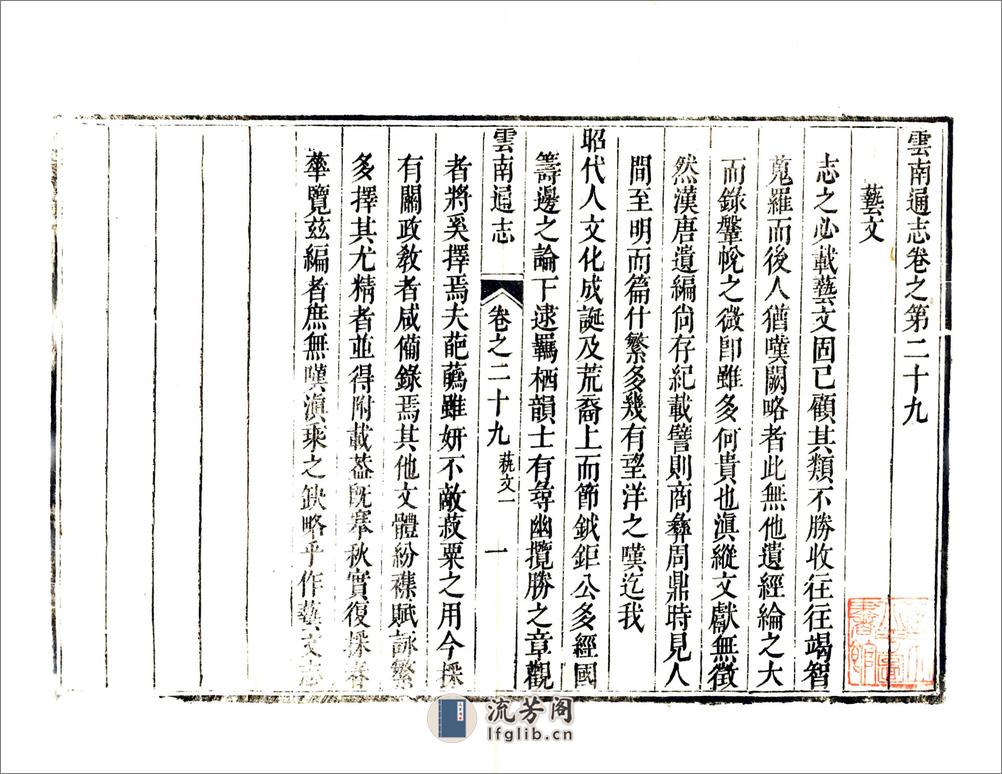 雲南通志卷之第二十九
藝文
志之必載藝文固已顧其類不勝收往往竭智
蒐羅而後人猶嘆闕略者此無他遺經綸之大
而錄鞶帨之微即雖多何貴也滇縱文獻無徵
然漢唐遺編尚存紀載譬則商彝周鼎時見人
間至明而篇什繁多幾有望洋之嘆迄我
昭代人文化成誕及荒裔上而節鉞鉅公多經國
籌邊之論下逮羈栖韻士有尋幽攬勝之章觀
雲南通志 卷之二十九 藝文一 一
者將奚擇焉夫葩藻雖妍不敵菽粟之用今採
有關政教者咸備錄焉其他文體紛襍賦詠繁
多擇其尤精者並得附載葢既搴秋實復採春
華覽茲編者庶無嘆滇乘之缺略乎作藝文志
流芳阁
lfglib.cn